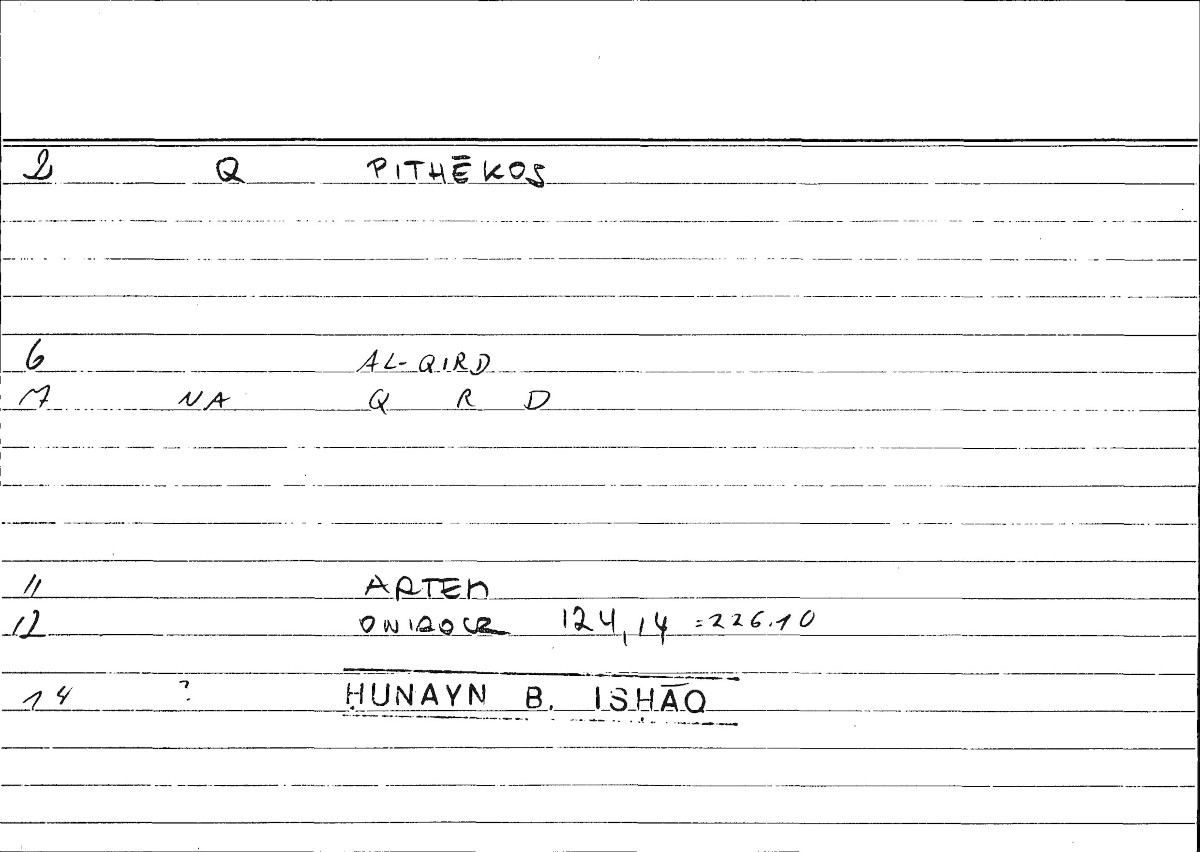 2 Q PITHĒKOS
6 AL-QIRD
7 NA Q R D
11 ARTEM
12 ONIROCR 124,14 =226.10
14 ? ḤUNAYN B. ISḤĀQ